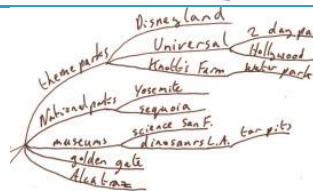 Disneyland
theme parks
Universal
2 day pa
Hollywood
Knott's Farm
water park
National parks
Yosemite
sequoia
museums
science San F.
dinosaurs L.A.
tar pits
golden gate
Alcatraz